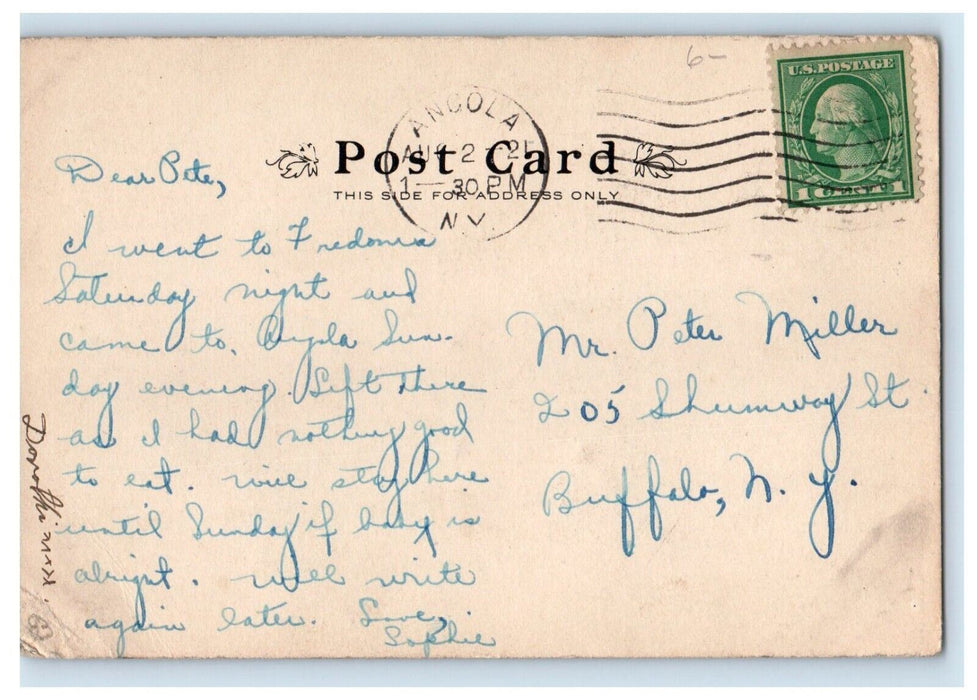 6-
U.S. POSTAGE
1 CENT 1
ANGOLA
AUG 2 - 21
1 - 30 PM
N.Y.
Post Card
THIS SIDE FOR ADDRESS ONLY
Dear Pete,
I went to Fredonia
Saturday night and
came to Sun-
day evening. Left there
as I had nothing good
to eat. Will stay here
until Sunday if baby is
alright. Will write
again later. Love,
Sophie
Mr. Peter Miller
205 Shumway St.
Buffalo, N. Y.